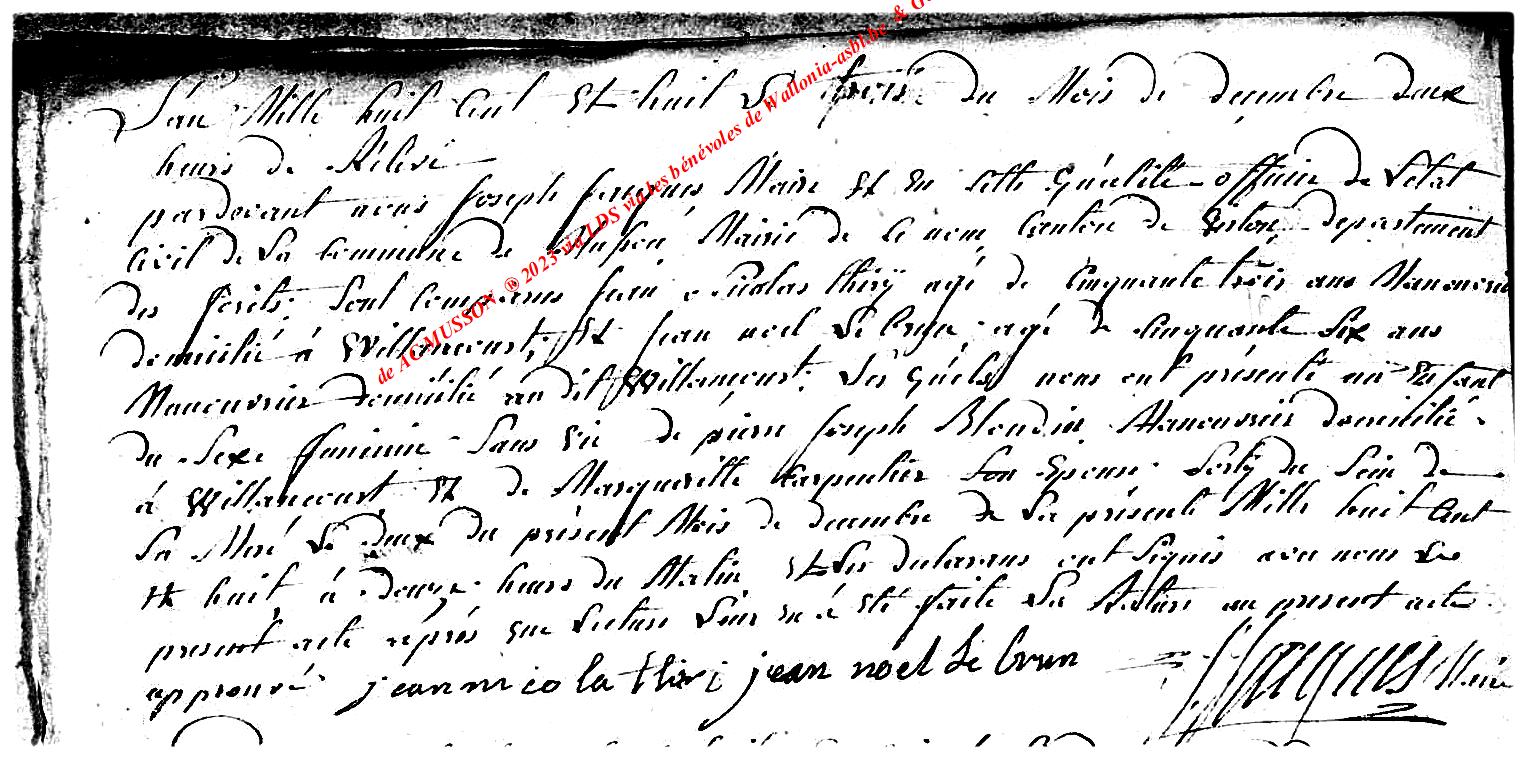 L'an Mille huit Cent Et huit Le trois du Mois de decembre deux
heures de Rélevé
pardevant nous Joseph Jacques Maire Et En Cette Quélité officier de L'etat
Civil de La Commune de Musson Mairie de Ce nom, Canton de Virton, departement
des forêts; Sont Comparus Jean Nicolas thiry agé de Cinquante trois ans Manouvrier
domicilié à Willancourt; Et Jean noel Le brun; agé de Cinquante Six ans
Manouvrier domicilié au dit Willancourt; Les Quéls nous ont présenté un Enfant
du Sexe feminin Sans vie de pierre Joseph Blondin Manouvrier domicilié
à Willancourt Et de Margueritte Carpentier Son Epouse Sorty du Sein de
Sa Meré Le deux du présent Mois de decembre de La présente Mille huit Cent
Et huit à deuze heures du Matin Et Les declarans ont Signés avec nous Le
present acte aprés que Lecture Leur en á Eté faite La Rature au present acte
approuvé jean nicola thiri jean noel Le brun J Jacques Maire
de ACMUSSON ® 2023 via LDS via les bénévoles de Wallonia-asbl.be & G